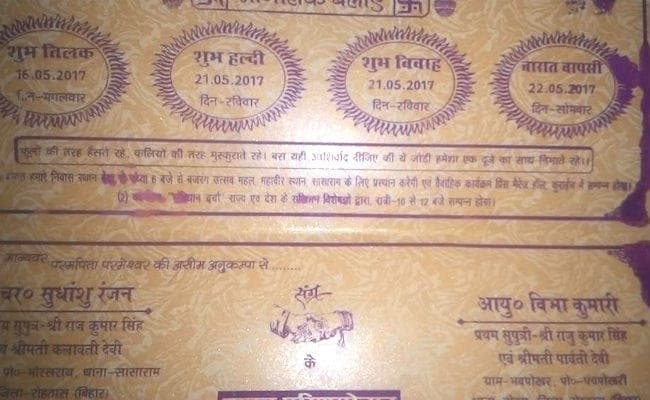 शुभ तिलक
16.05.2017
दिन-मंगलवार
शुभ हल्दी
21.05.2017
दिन-रविवार
शुभ विवाह
21.05.2017
दिन-रविवार
बारात वापसी
22.05.2017
दिन-सोमवार
फूलों की तरह हँसते रहे, कलियों की तरह मुस्कुराते रहे। बस यही आशिर्वाद दीजिए की ये जोड़ी हमेशा एक दूजे का साथ निभाते रहे।।
हमारे निवास स्थान से संध्या 6 बजे से बजरंग उत्सव महल, महावीर स्थान, सासाराम के लिए प्रस्थान करेगी एवं वैवाहिक कार्यक्रम प्रिंस मैरेज हॉल, में सम्पन्न होगा।
(2) चर्चा' राज्य एवं देश के विशेषज्ञों द्वारा, रात्री-10 से 12 बजे सम्पन्न होगा।
मान्यवर,
परमपिता परमेश्वर की असीम अनुकम्पा से ........
सुधांशु रंजन
सुपुत्र-श्री राज कुमार सिंह
श्रीमती कलावती देवी
पो०- थाना-सासाराम
जिला-रोहतास (बिहार)
संग
के
आयु० विभा कुमारी
प्रथम सुपुत्री-श्री राजु कुमार सिंह
एवं श्रीमती पार्वती देवी
ग्राम-भवपोखर, पो०-